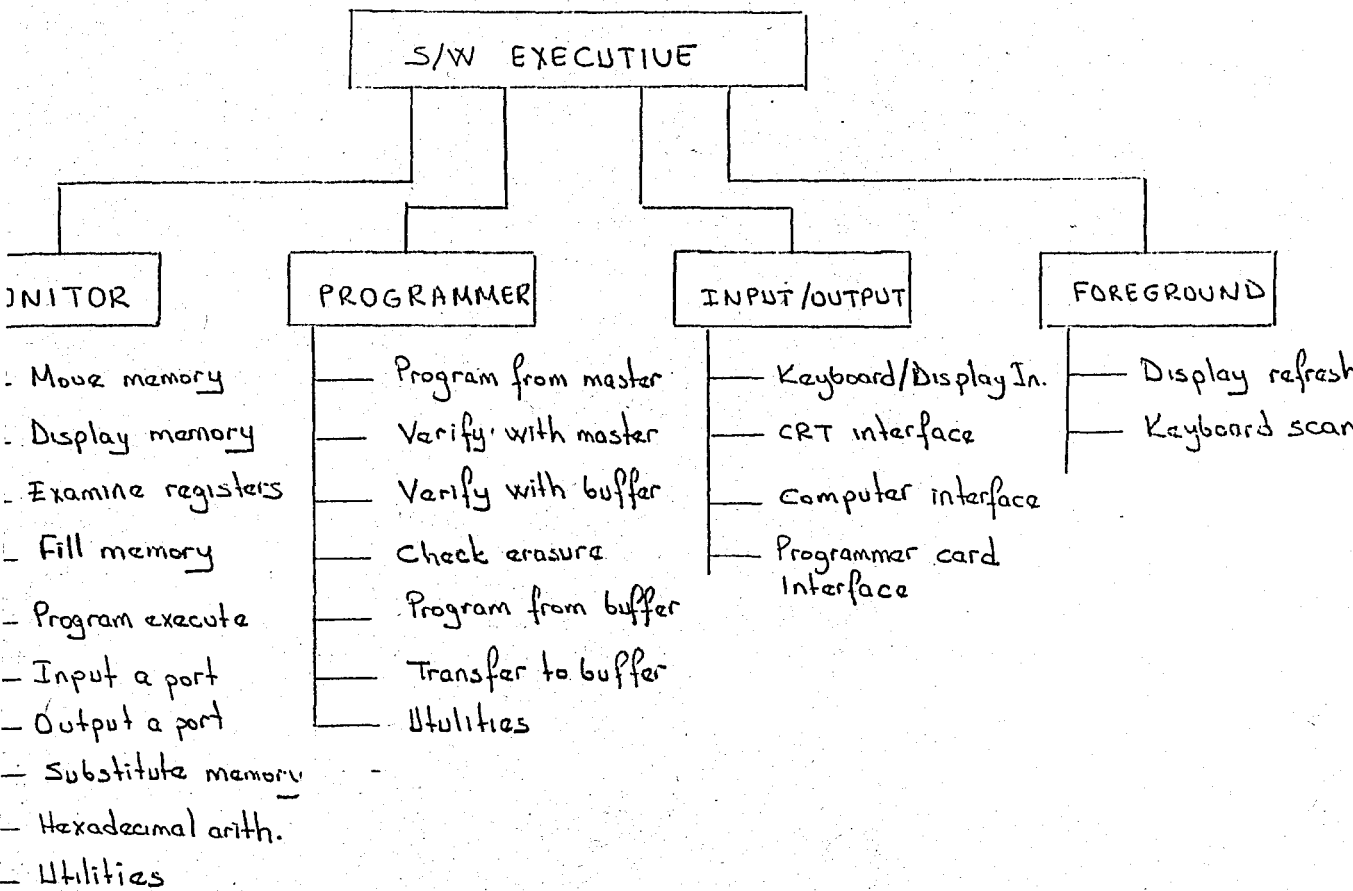 S/W EXECUTIVE
ONITOR
Move memory
Display memory
Examine registers
Fill memory
Program execute
Input a port
Output a port
Substitute memory
Hexadecimal arith.
Utilities
PROGRAMMER
Program from master
Verify with master
Verify with buffer
Check erasure
Program from buffer
Transfer to buffer
Utulities
INPUT/OUTPUT
Keyboard/Display In.
CRT interface
Computer interface
Programmer card
Interface
FOREGROUND
Display refresh
Keyboard scan